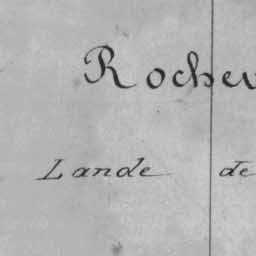 Rochev
Lande de